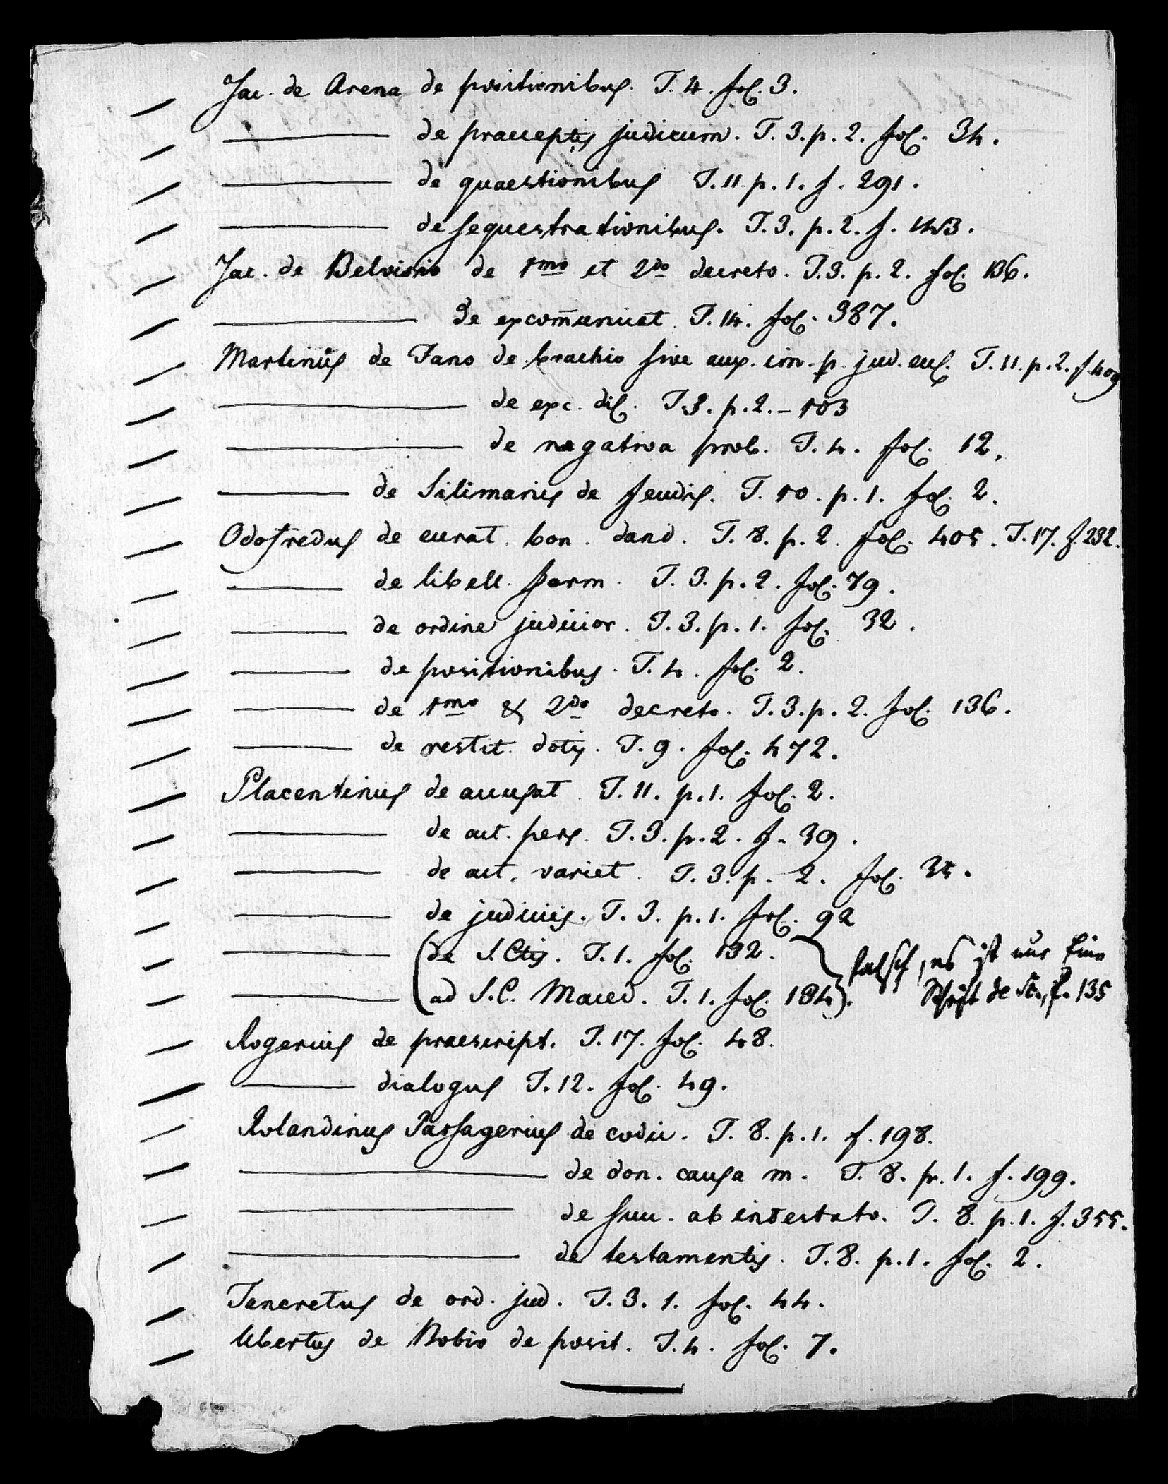 Jac. de Arena de positionibus. T. 4. fol. 3.
——— de praeceptis judicum. T. 3. p. 2. fol. 34.
——— de quaestionibus T. 11 p. 1. f. 291.
——— de sequestrationibus. T. 3. p. 2. f. 143.
Jac. de Belvisio de 1mo et 2do decreto. T. 3. p. 2. fol. 136.
——— de excom̄unicat. T. 14. fol. 387.
Martinus de Fano de brachio sive aux. im. p. jud. eccl. T. 11. p. 2. f. 409
——— de exc. dil. T. 3. p. 2. – 103
——— de negativa prob. T. 4. fol. 12.
——— de Silimanis de feudis. T. 10. p. 1. fol. 2.
Odofredus de curat. bon. dand. T. 8. p. 2. fol. 405. T. 17. f. 232.
——— de libell. form. T. 3. p. 2. fol. 79.
——— de ordine judicior. T. 3. p. 1. fol. 32.
——— de positionibus. T. 4. fol. 2.
——— de 1mo & 2do decreto. T. 3. p. 2. fol. 136.
——— de restit. dotis. T. 9. fol. 472.
Placentinus de accusat. T. 11. p. 1. fol. 2.
——— de act. pers. T. 3. p. 2. f. 39.
——— de act. variet. T. 3. p. 2. fol. 35.
——— de judiciis. T. 3. p. 1. fol. 92
——— (de S. Ctis. T. 1. fol. 132.
——— (ad S. C. Maced. T. 1. fol. 134).
falsch, es ist nur Eine
Schrift de Sc., f. 135
Rogerius de praescript. T. 17. fol. 48.
——— dialogus T. 12. fol. 49.
Rolandinus Passagerius de codic. T. 8. p. 1. f. 198.
——— de don. causa m. T. 8. p. 1. f. 199.
——— de succ. ab intestato. T. 8. p. 1. f. 355.
——— de testamentis. T. 8. p. 1. fol. 2.
Teneretus de ord. jud. T. 3. 1. fol. 44.
Ubertus de Bobio de posit. T. 4. fol. 7.